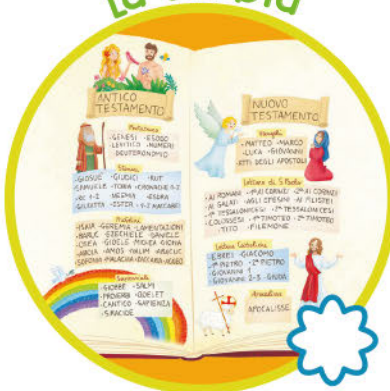 La
ANTICO
TESTAMENTO
Pentateuco
•GENESI •ESODO
•LEVITICO •NUMERI
•DEUTERONOMIO
Storici
•GIOSUÈ •GIUDICI •RUT
•SAMUELE •TOBIA •CRONACHE 1-2
•RE 1-2 •NEEMIA •ESDRA
•GIUDITTA •ESTER •1-2 MACCABEI
Profetici
•ISAIA •GEREMIA •LAMENTAZIONI
•BARUC •EZECHIELE •DANIELE
•OSEA •GIOELE •MICHEA •GIONA
•ABDIA •AMOS •NAUM •ABACUC
•SOFONIA •MALACHIA •ZACCARIA
Sapienziali
•GIOBBE •SALMI
•PROVERBI •QOELET
•CANTICO •SAPIENZA
•SIRACIDE
NUOVO
TESTAMENTO
Vangeli
•MATTEO •MARCO
•LUCA •GIOVANNI
ATTI DEGLI APOSTOLI
Lettere di S. Paolo
•AI ROMANI •1ª AI CORINZI •2ª AI CORINZI
•AI GALATI •AGLI EFESINI •AI FILIPPESI
•1ª TESSALONICESI •2ª TESSALONICESI
•COLOSSESI •1ª TIMOTEO •2ª TIMOTEO
•TITO •FILEMONE
Lettere Cattoliche
•EBREI •GIACOMO
•1ª PIETRO •2ª PIETRO
•GIOVANNI 1
•GIOVANNI 2-3 •GIUDA
Apocalisse
APOCALISSE